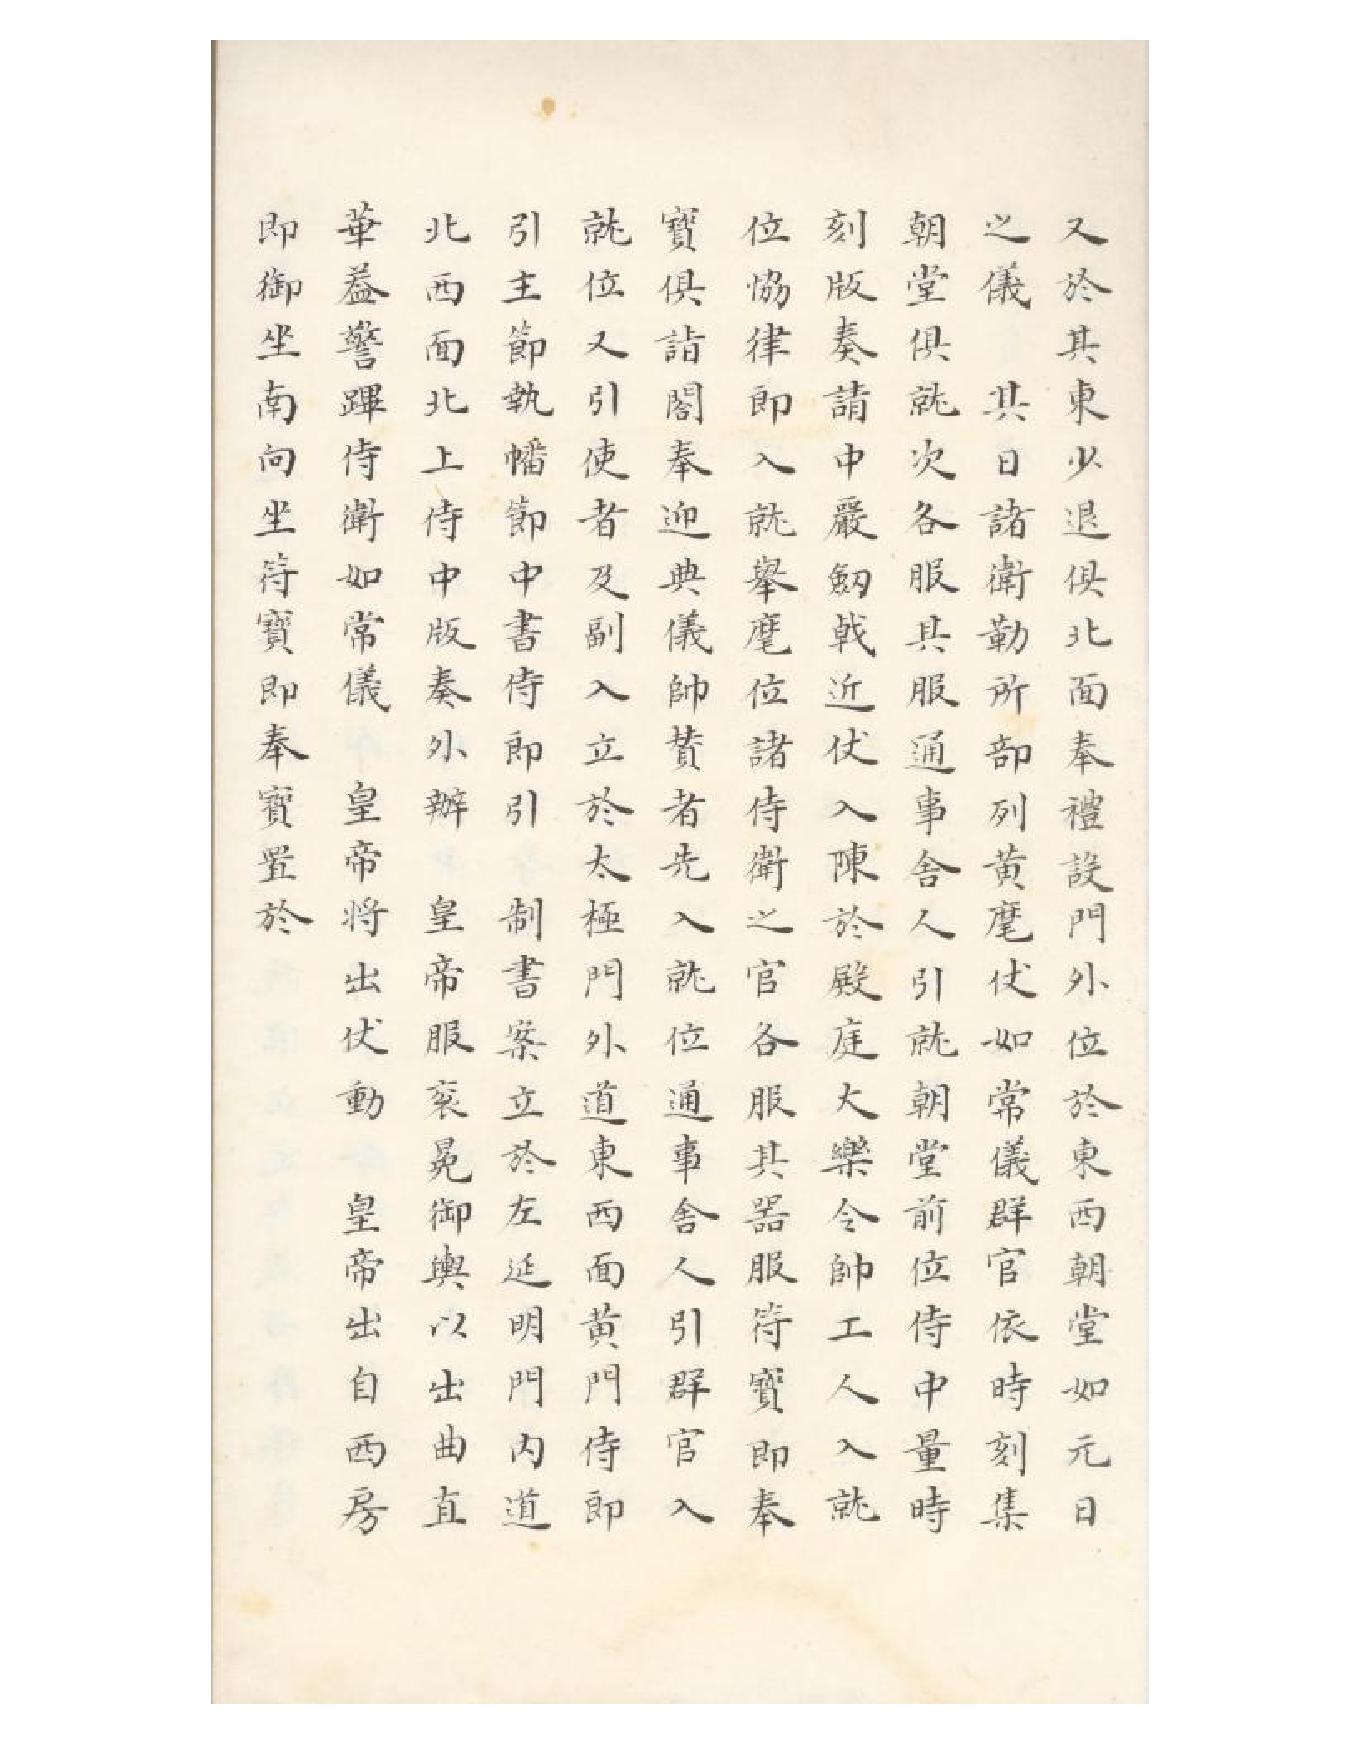 又於其東少退俱北面奉禮設門外位於東西朝堂如元日
之儀　其日諸衛勒所部列黃麾仗如常儀群官依時刻集
朝堂俱就次各服其服通事舍人引就朝堂前位侍中量時
刻版奏請中嚴鈒戟近仗入陳於殿庭大樂令帥工人入就
位協律郎入就舉麾位諸侍衛之官各服其器服符寶郎奉
寶俱詣閤奉迎典儀帥贊者先入就位通事舍人引群官入
就位又引使者及副入立於太極門外道東西面黃門侍郎
引主節執幡節中書侍郎引　制書案立於左延明門內道
北西面北上侍中版奏外辦　皇帝服袞冕御輿以出曲直
華蓋警蹕侍衛如常儀　皇帝將出仗動　皇帝出自西房
即御坐南向坐符寶郎奉寶置於